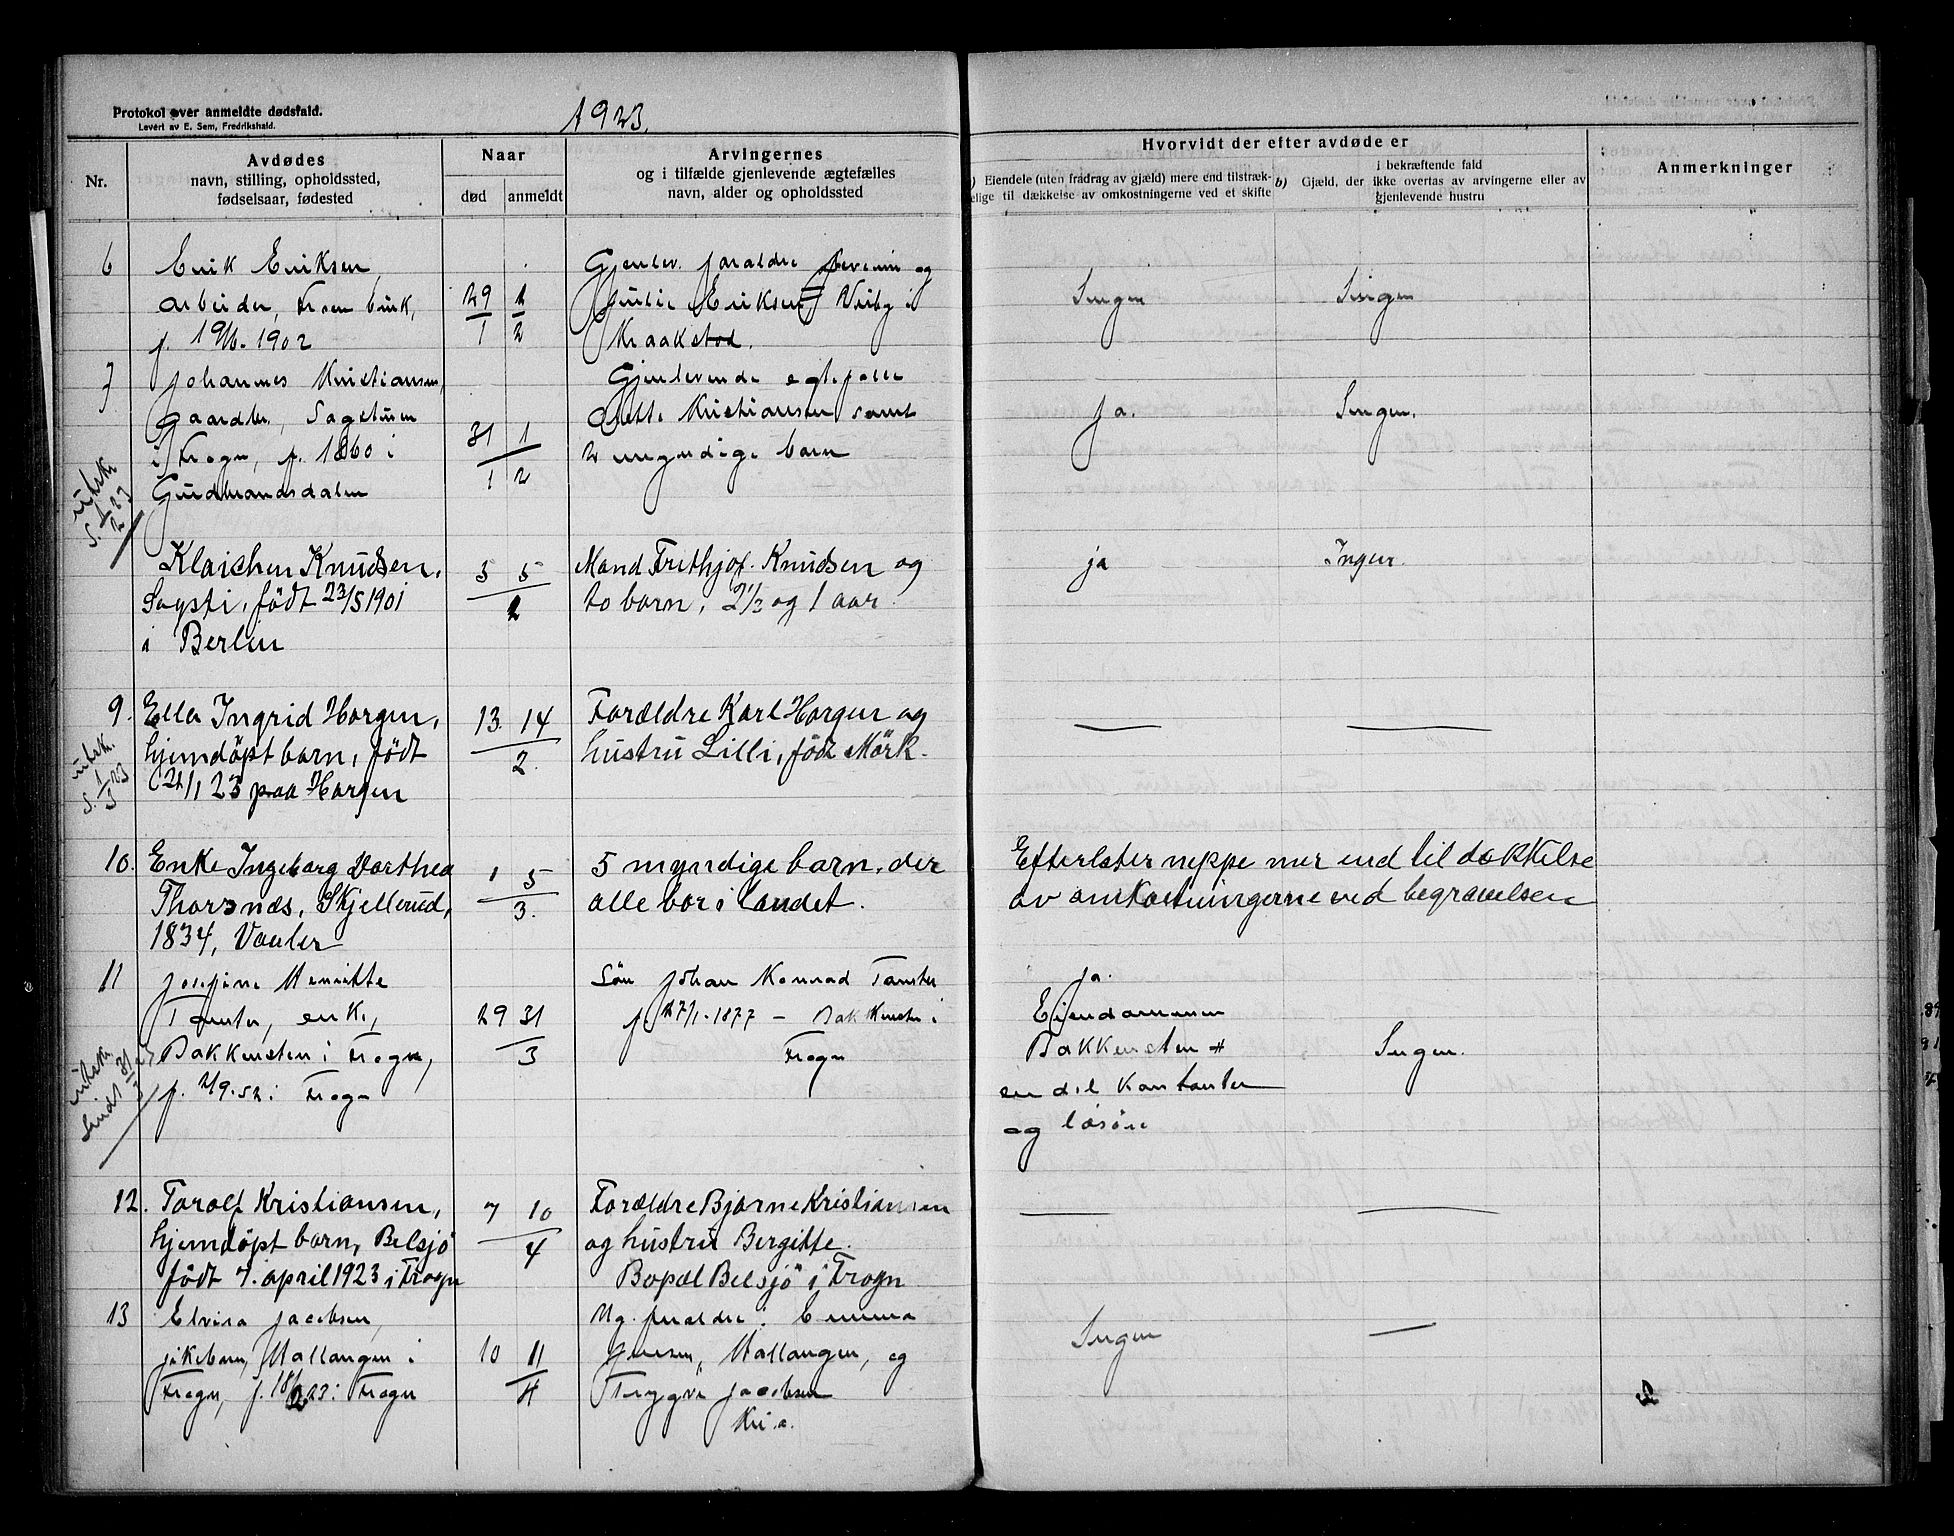 Protokol over anmeldte dødsfald.
Levert av E. Sem, Fredrikshald.
1923.
Nr.
Avdødes
navn, stilling, opholdssted,
fødselsaar, fødested
Naar
død
anmeldt
Arvingernes
og i tilfælde gjenlevende ægtefælles
navn, alder og opholdssted
Hvorvidt der efter avdøde er
a) Eiendele (uten fradrag av gjæld) mere end tilstræk-
kelige til dækkelse av omkostningerne ved et skifte
b) Gjæld, der
i bekræftende fald
ikke overtas av arvingerne eller av
gjenlevende hustru
Anmerkninger
6
Erik Eriksen,
arbeider, Froen bruk,
f. 19/6. 1902
29/1
1/2
Gjenlev. foraldre og
Julie Eriksen, i
Kraakstad.
Ingen
Ingen
7
Johannes Kristiansen,
gaardbr., Sagstuen
i Frogn, f. 1860 i
Gudbrandsdalen
31/1
1/2
Gjenlevende egtefelle
Kristiansen samt
2 umyndige barn
ja.
Ingen.
utskr.
S. 1/2 23
Klaichen Knudsen,
Sogsti, født 23/5 1901
i Berlin
5
5/2
Mand Frithjof Knudsen og
to barn, 2 1/2 og 1 aar.
ja
Ingen.
9.
Ella Ingrid Horgen,
hjemdøpt barn, født
21/1 23 paa Horgen
13.
14/2.
Forældre Karl Horgen og
hustru Lilli, født Mörk.
utsk.
S. 1/3 23
10.
Enke Ingeborg Dorthea
Thorsnæs, Skjellerud,
1834, Vaaler
1
5/3.
5 myndige barn, der
alle bor i landet.
Efterlater neppe mer end til dækkelse
av omkostningerne ved begravelsen
11
Josefine Henriette
enke,
Bakkensten i Frogn,
f. 2/9. 52 i Frogn
29
31/3
Søn Johan Konrad
f. 27/1. 1877 – Bakkensten i
Frogn
ja.
Eiendommen
Bakkensten +
en del kontanter
og løsøre
Ingen.
utskr.
Sendt 31/3 23
12.
Torolf Kristiansen,
hjemdøpt barn, Belsjø
født 7. april 1923 i Frogn
7
10/4
Forældre Bjarne Kristiansen
og hustru Bergitte.
Bopæl Belsjö i Frogn
13
Elvira Jacobsen,
pikebarn, Hallangen i
Frogn, f. 18/2 23 i Frogn
10
11/4
Ug. foraldre: Emma
Jensen, Hallangen, og
Trygve Jacobsen
Kr.a.
Ingen